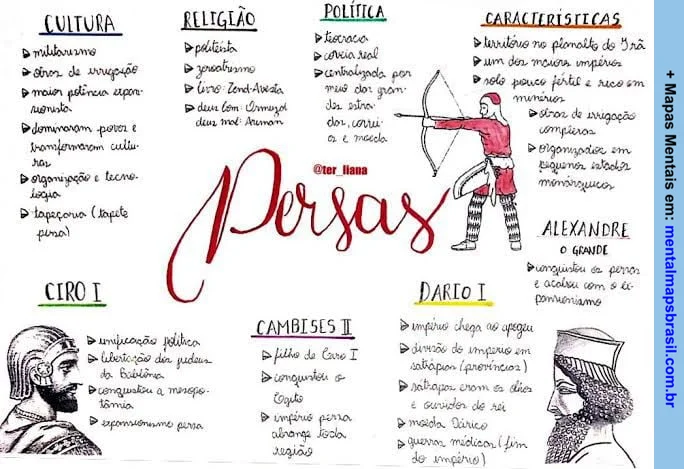 CULTURA
militarismo
obras de irrigação
maior potência expan-
sionista
dominaram povos e
transformaram cultu-
ras
organização e tecno-
logia
tapeçaria (tapete
persa)
RELIGIÃO
politeísta
zoroatrismo
livro: Zend-Avesta
deus bom: Ormuzd
deus mal: Ariman
POLÍTICA
teocracia
corveia real
centralizada por
meio das gran-
des estra-
das, correi-
os e moeda
CARACTERÍSTICAS
território no planalto do Irã
um dos maiores impérios
solo pouco fértil e rico em
minérios
obras de irrigação
complexas
organizados em
pequenos estados
monárquicos
@ter_liana
Persas
ALEXANDRE
O GRANDE
conquistou os persas
e acabou com o ex-
pansionismo
CIRO I
unificação política
libertação dos judeus
da Babilônia
conquistou a mesopo-
tâmia
expansionismo persa
CAMBISES II
filho de Ciro I
conquistou o
Egito
império persa
abrange toda
região
DARIO I
império chega ao apogeu
divisão do império em
satrápias (províncias)
satrapas eram os olhos
e ouvidos do rei
moeda Dárico
guerras médicas (fim
do império)
+ Mapas Mentais em: mentalmapsbrasil.com.br